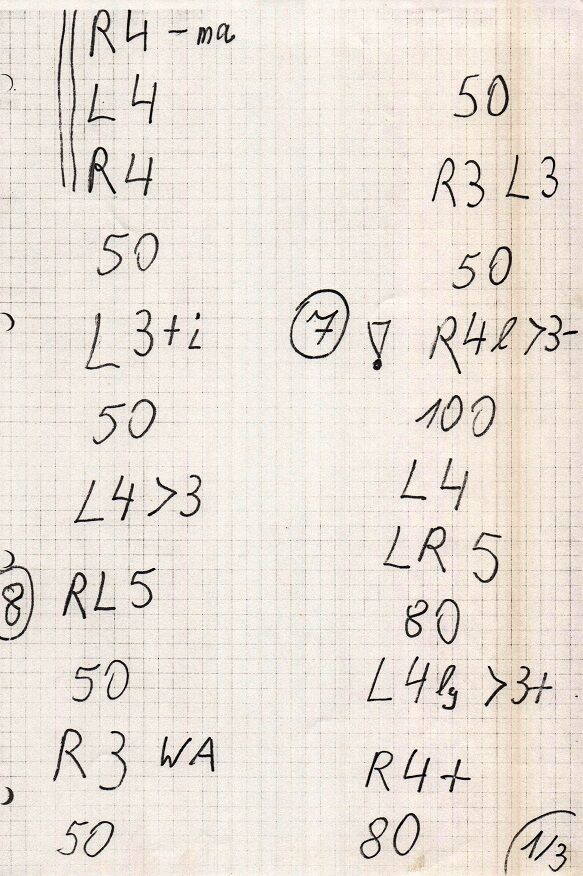 R4-ma
L4
R4
50
L3+i
50
L4>3
8 RL5
50
R3 WA
50
50
R3 L3
50
7 ! R4l>3-
100
L4
LR5
80
L4lg >3+
R4+
80
1/3